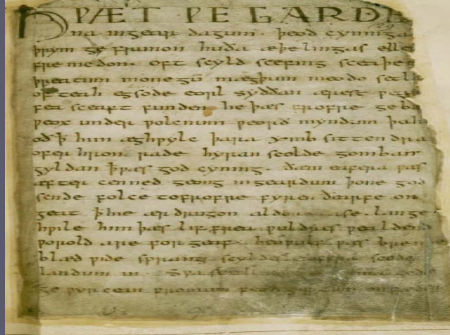 HǷÆT ǷE GARDE
na ingear dagum. þeod cyninga
þrym ge frunon huða æþelingas elle
fre medon. oft scyld scefing sceaþe
þreatum monegū mægþum meodo setla
of teah egsode eorl syððan ærest ƿear
fea sceaft funden he þæs frofre geba
ƿeox under ƿolcnum ƿeorð myndum þah
oð ꝥ him æghƿylc þara ymb sittendra
ofer hron rade hyran scolde gomban
gyldan ꝥ ƿæs god cyning. ðæm eafera ƿæs
æfter cenned geong ingeardum þone god
sende folce tofrofre fyren ðearfe on
geat ꝥ hie ær drugon aldor ase. lange
hƿile him þæs lif frea ƿuldres ƿealdend
ƿorold are forgeaf. beoƿulf ƿæs breme
blæd ƿide sprang scyldes eafera scede
landum in. Sƿa sceal
ge ƿyrcean fromum